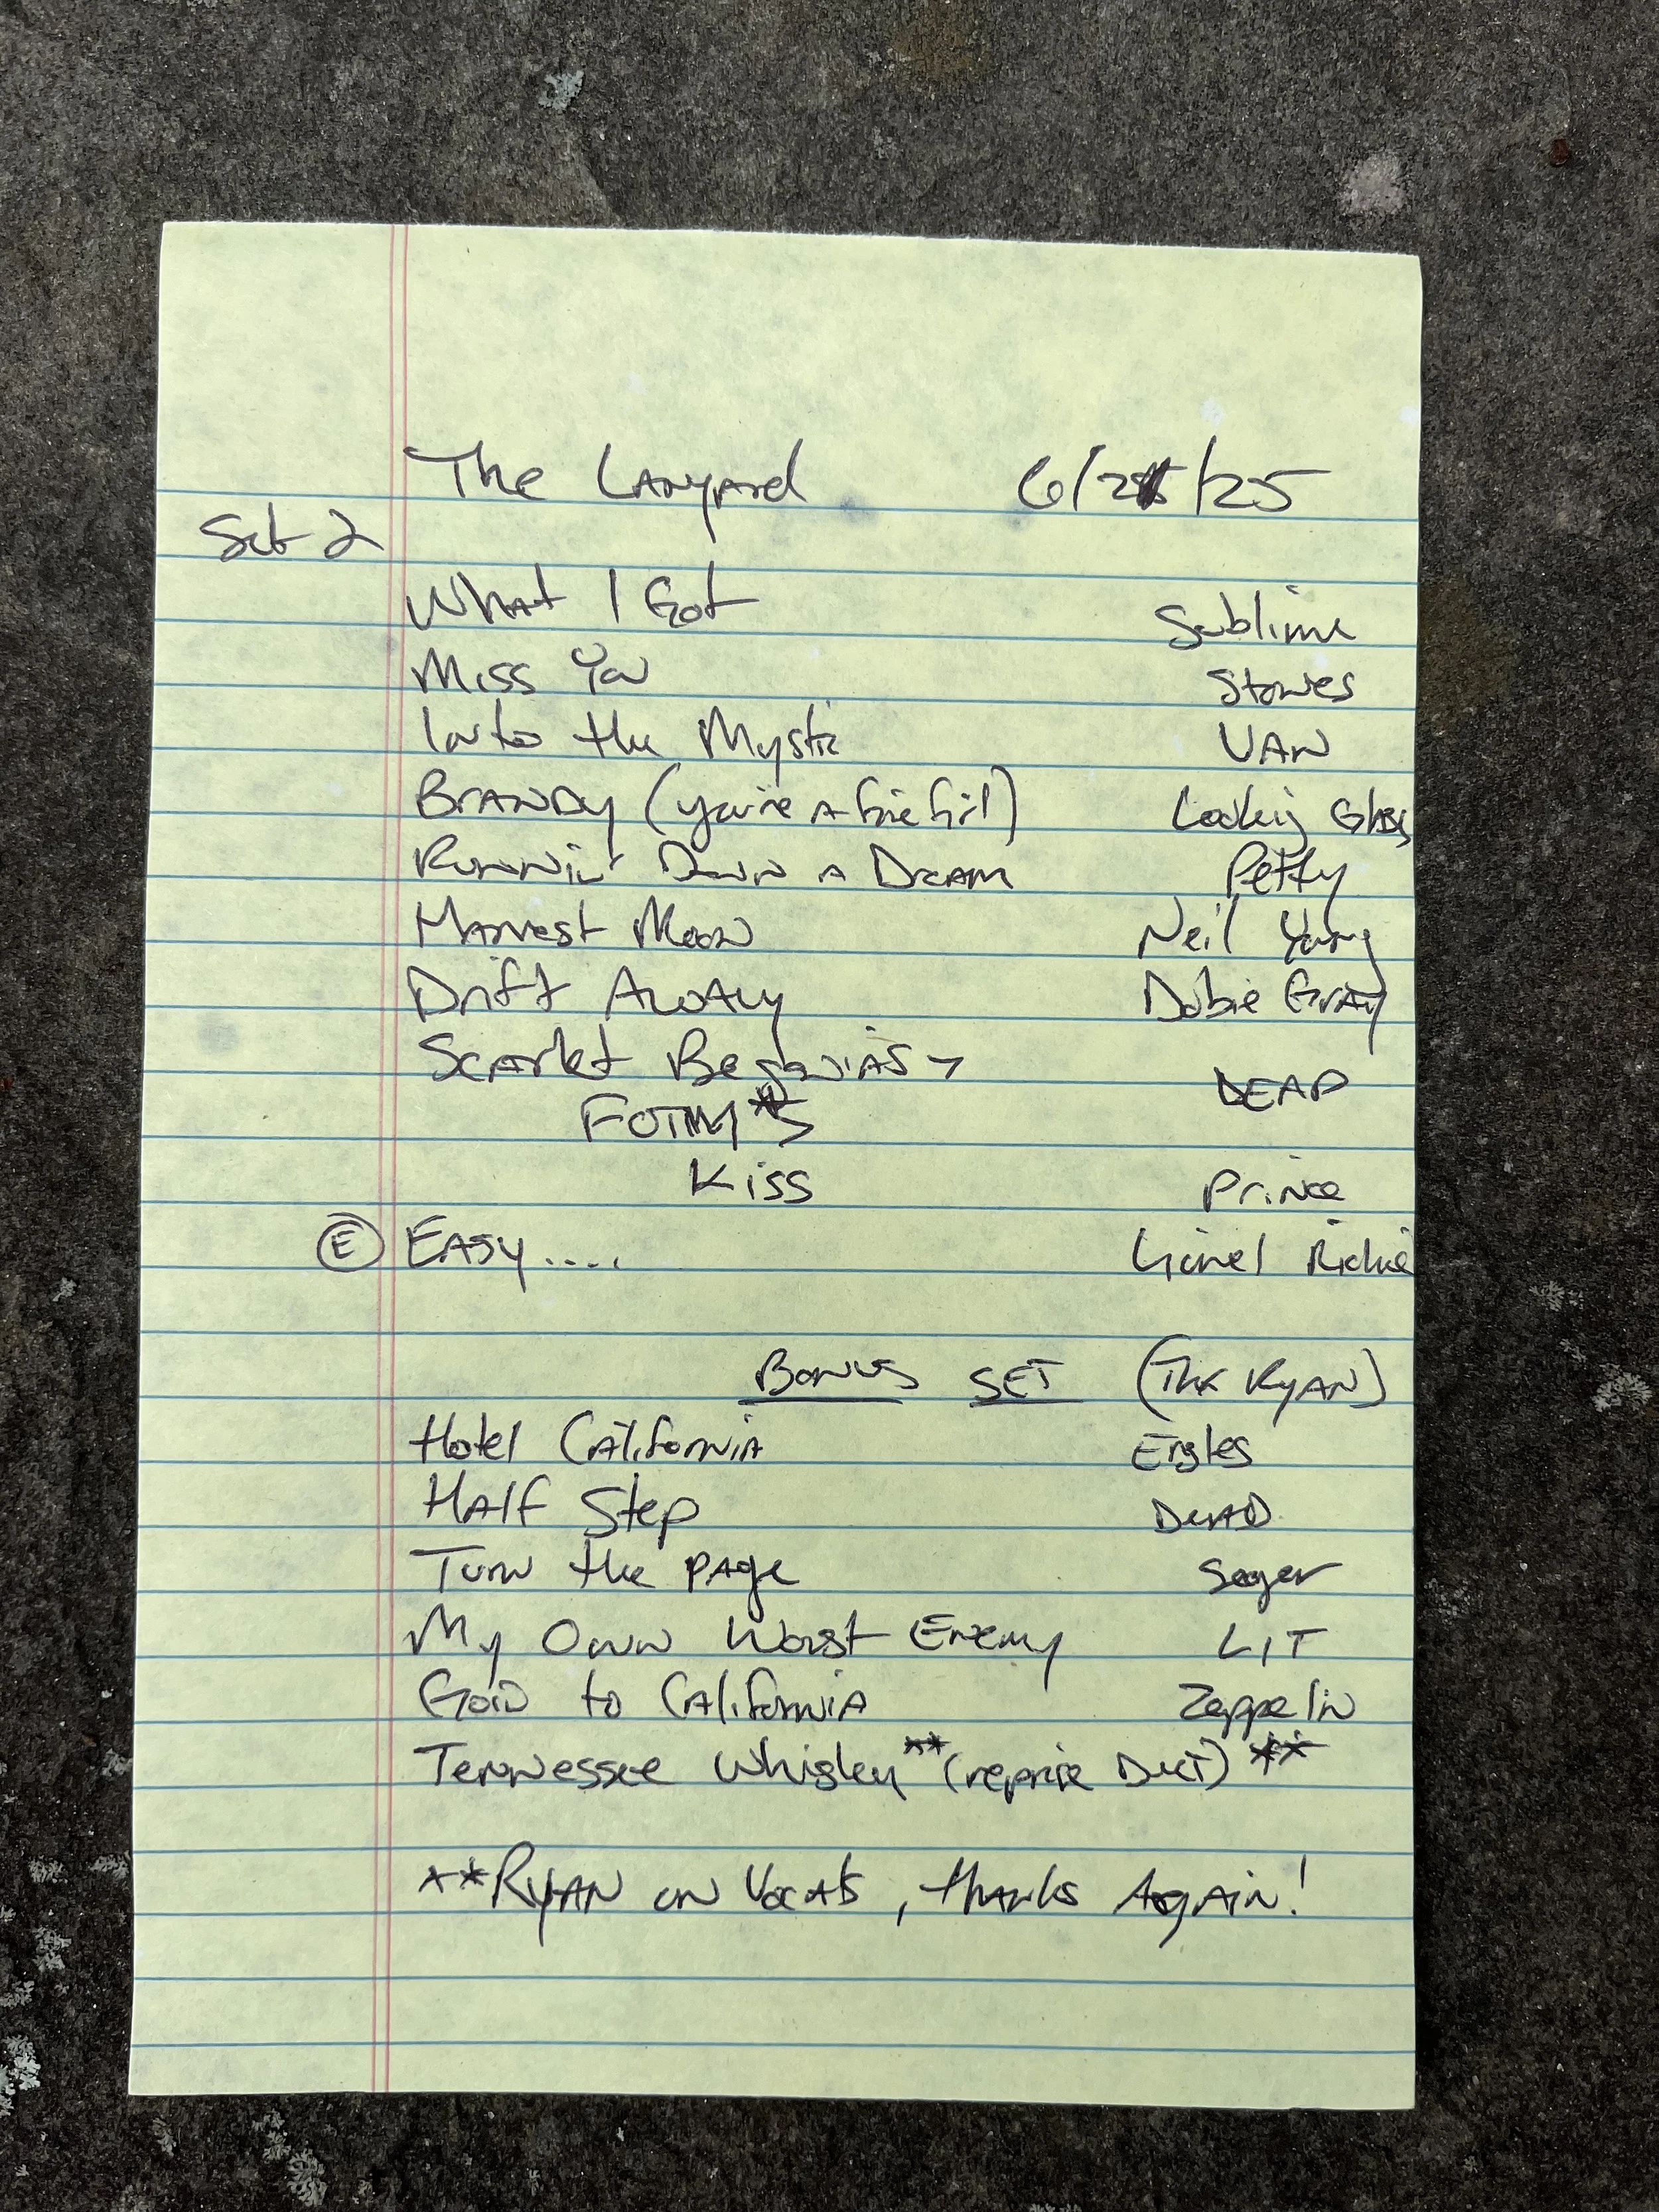 The Lanyard 6/25/25
Set 2
What I Got Sublime
Miss You Stones
Into the Mystic VAN
BRANDY (you're A fine Girl) Looking Glass
Runnin' Down A DREAM Petty
Harvest Moon Neil Young
Drift AWAY Dobie GRAY
Scarlet Begonias >
DEAD
FOTM* >
Kiss Prince
Ⓔ EASY.... Lionel Richie
Bonus SET (Thx RYAN)
Hotel California Eagles
HALF Step DEAD
Turn the PAge Seger
My Own Worst Enemy LIT
Goin to CAliforniA Zeppelin
Tennessee Whiskey** (reprise Duet) **
**RYAN on Vocals, thanks AgAin!